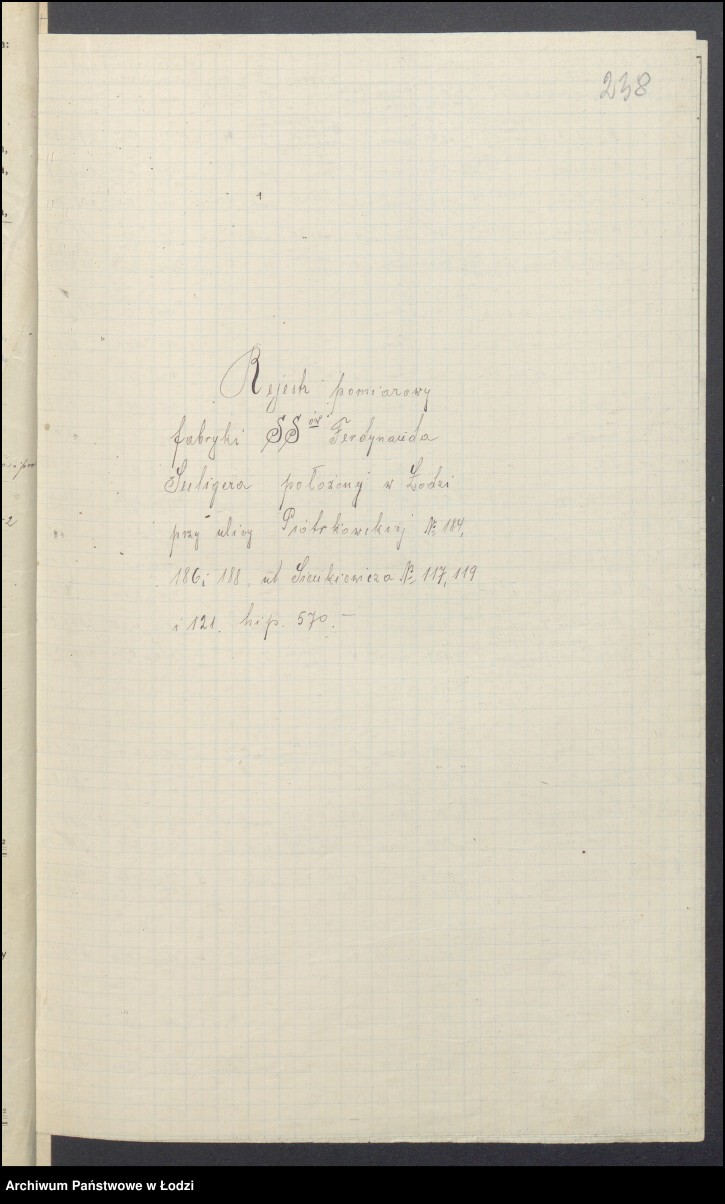 238
Rejestr pomiarowy
fabryki SS ów Ferdynanda
Seeligera położonej w Łodzi
przy ulicy Piotrkowskiej № 184,
186 i 188 ul. Sienkiewicza № 117, 119
i 121. hip. 570. —
Archiwum Państwowe w Łodzi